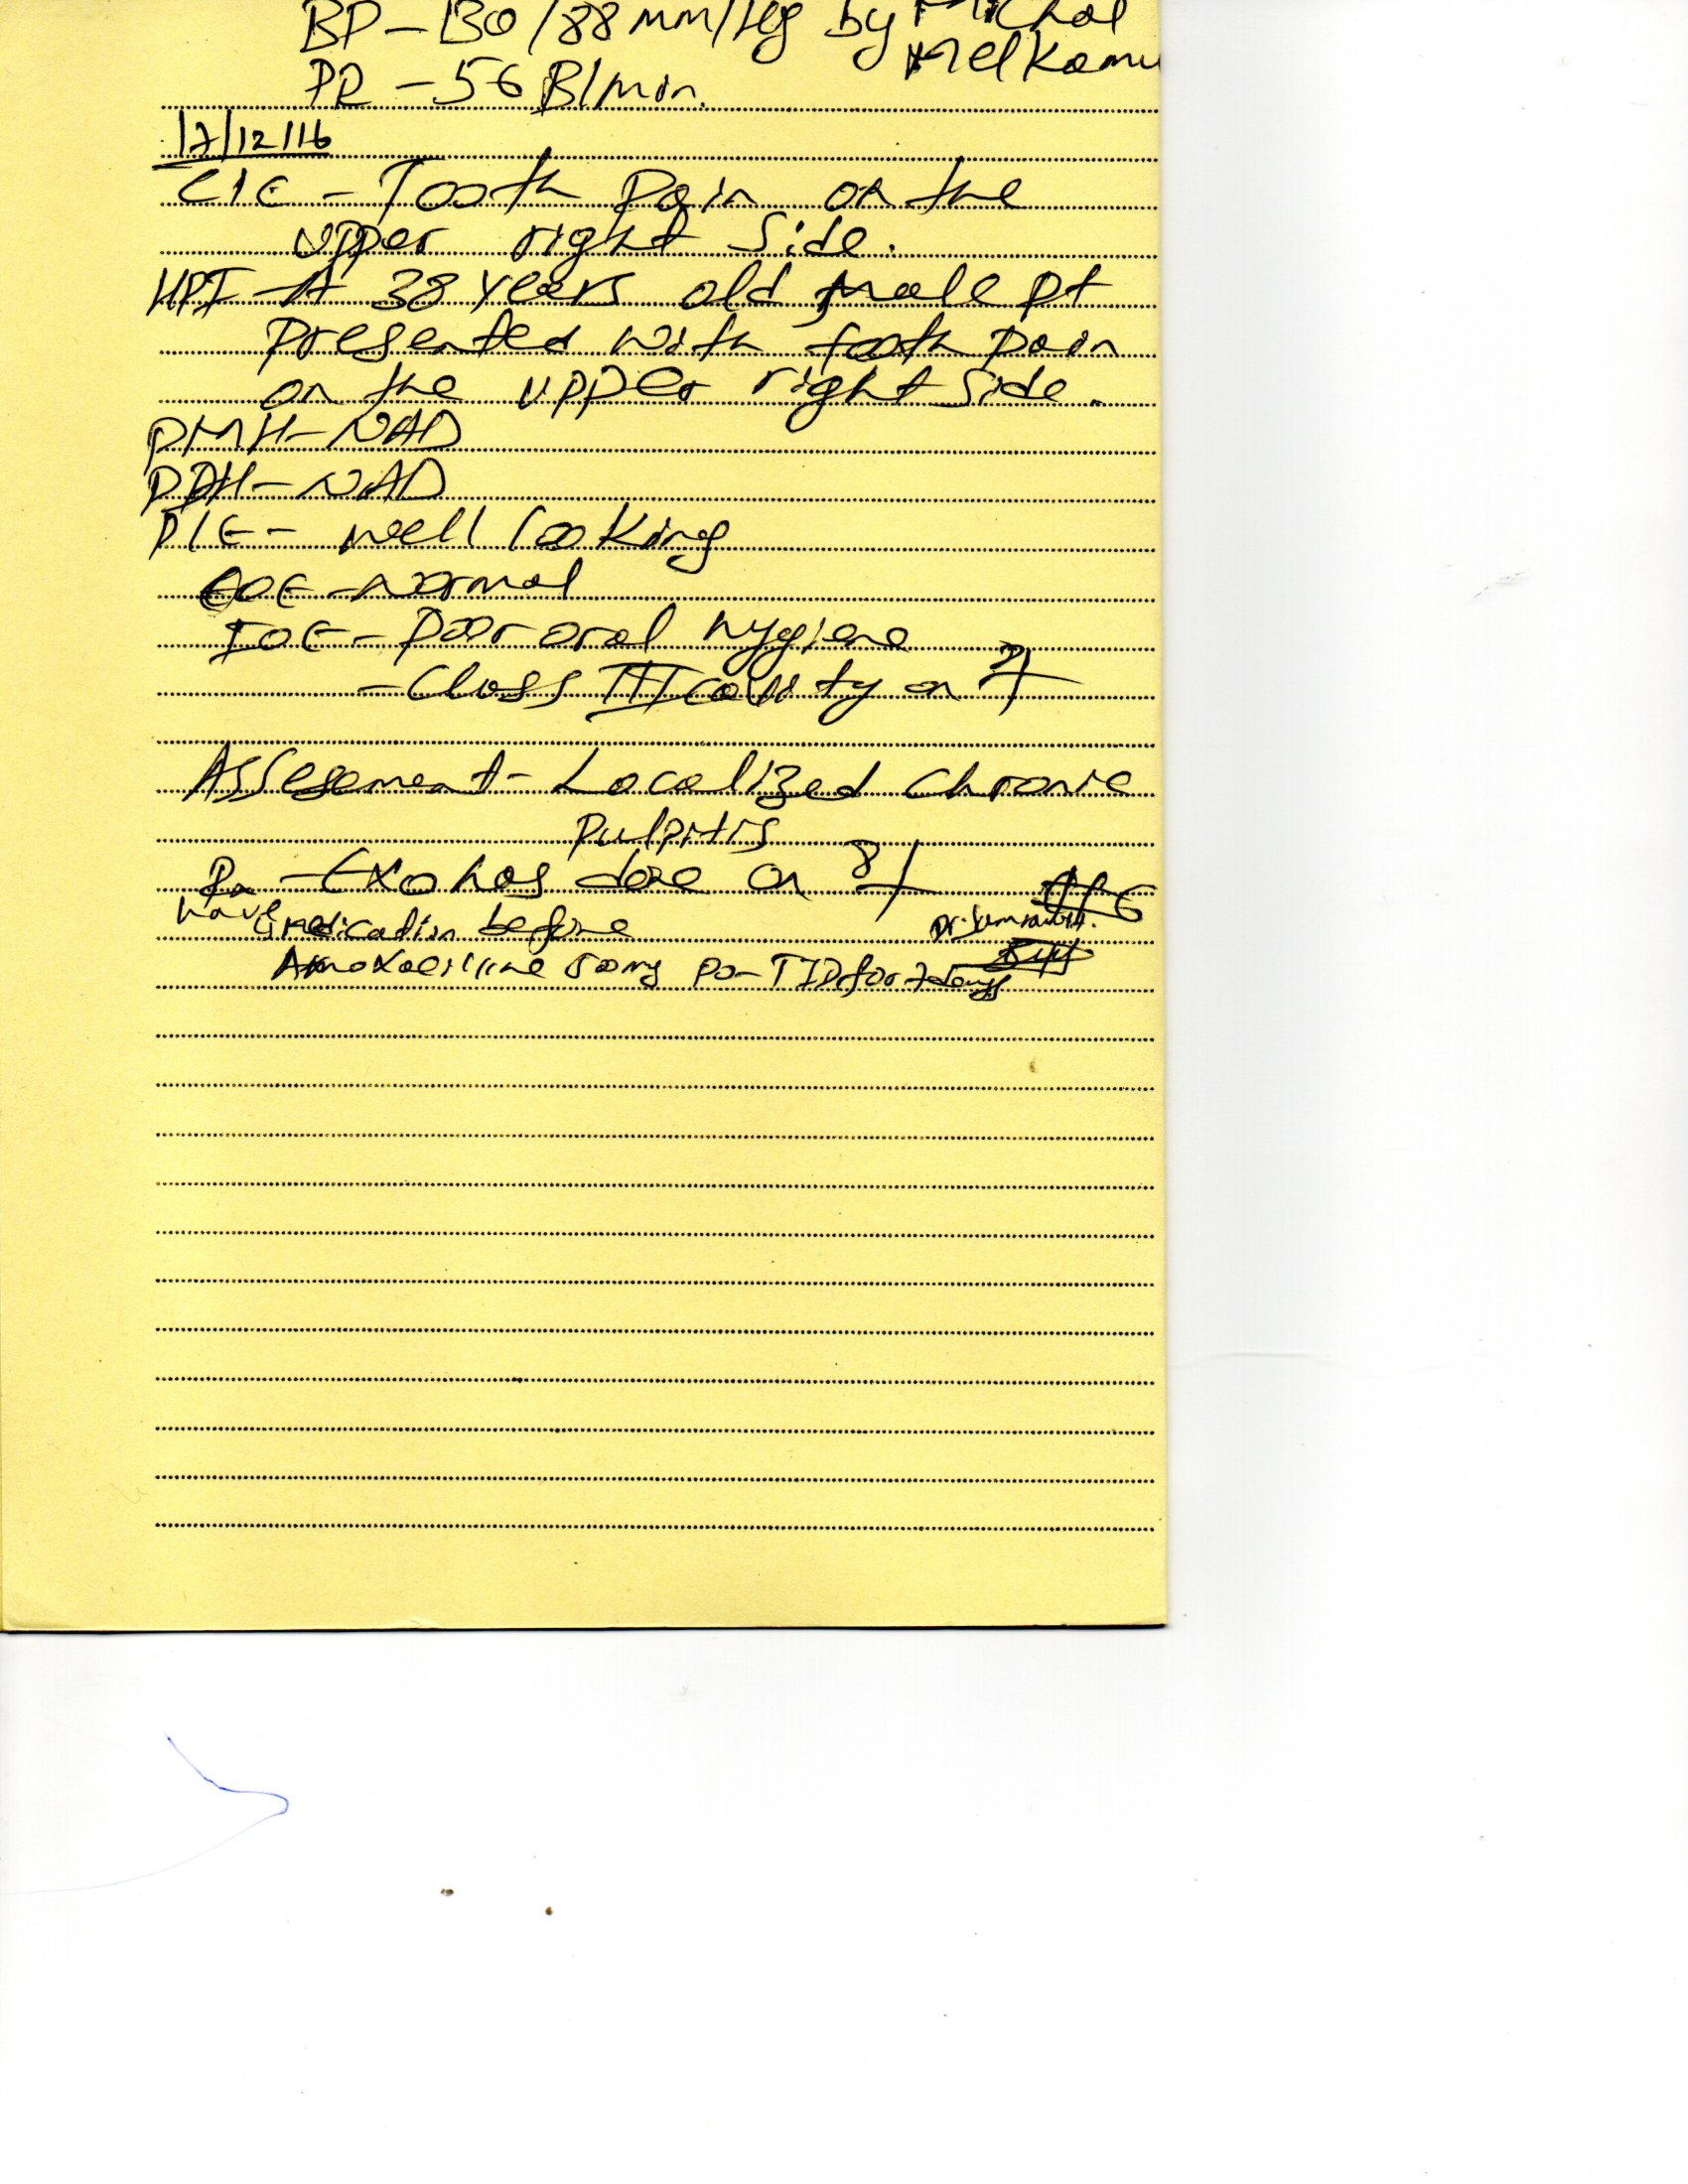 BP - 130/88 mm/Hg by Michal
Melkamu
PR - 56 B/min.
17/12/16
C/C - Tooth Pain on the
upper right side.
HPI - A 38 years old male pt
Presented with tooth pain
on the upper right side.
PMH - NAD
PDH - NAD
P/E - well looking
EOE - Normal
IOE - Poor oral hygiene
- Class III cavity on
Assesement - Localized chronic
pulpitis
Rx - Exo has done on 8
have
medication before
Amoxaciline 500mg po - TID for 7 days